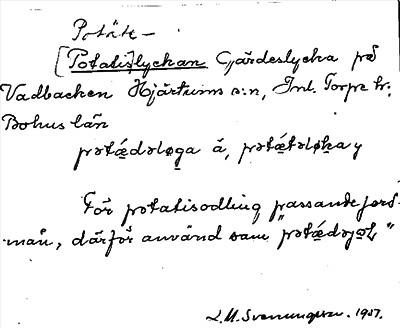 Potäte-
[Potatislyckan Gärdeslycka på
Vadbacken Hjärtums s:n, Inl. Torpe hr:
Bohus län
pətǽdəløga á, pətǽtəløka y
För potatisodling passande jord-
mån, därför använd som "pətǽdəjo̱ḷ"
L. M. Svenungsson. 1927.